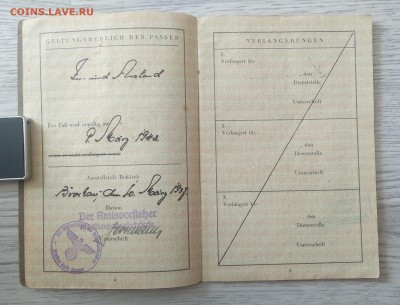 COINS.LAVE.RU
GELTUNGSBEREICH DES PASSES
In- und Ausland
Der Paß wird ungültig am
9. März 19
wenn er nicht verlängert wird.
Ausstellende Behörde
den 10. März 1937
Datum
Der Amtsvorsteher
Unterschrift
VERLÄNGERUNGEN
1.
Verlängert bis
, den
Dienststelle
Unterschrift
2.
Verlängert bis
, den
Dienststelle
Unterschrift
3.
Verlängert bis
, den
Dienststelle
Unterschrift